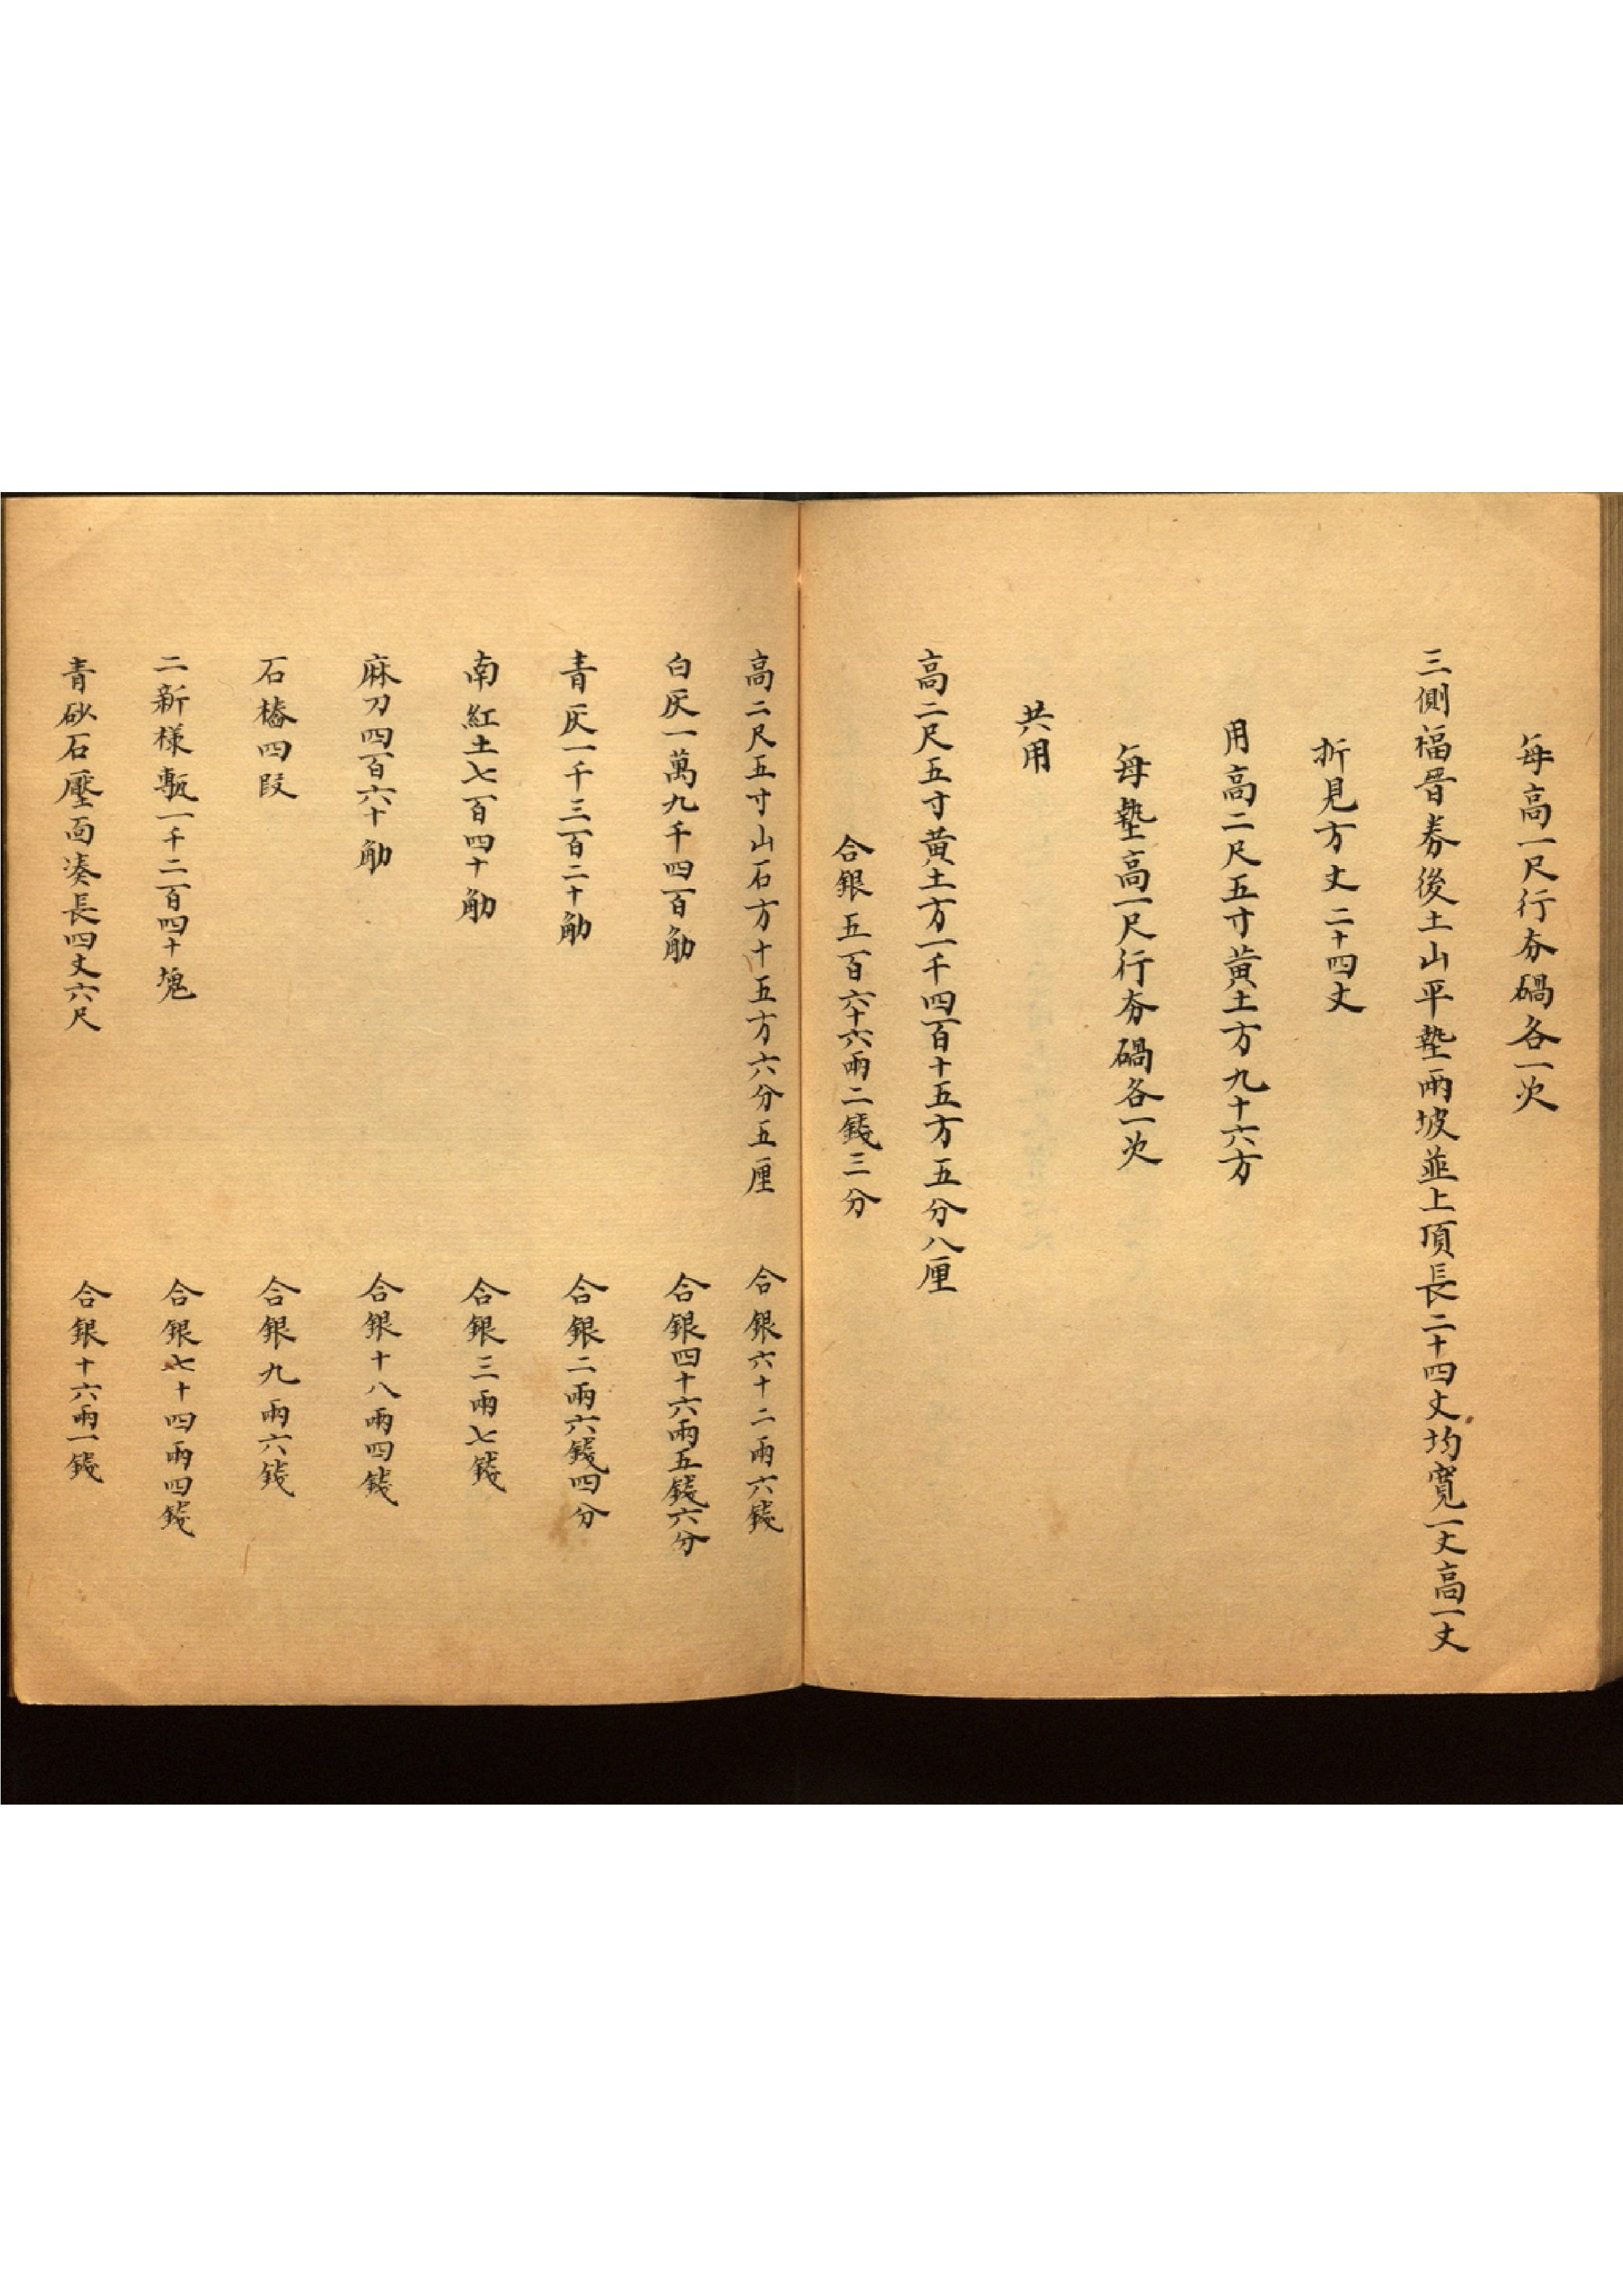 每高一尺行夯硪各一次
三側福晉券後土山平墊兩坡並上頂長二十四丈均寬一丈高一丈
折見方丈二十四丈
用高二尺五寸黃土方九十六方
每墊高一尺行夯硪各一次
共用
高二尺五寸黃土方一千四百十五方五分八厘
合銀五百六十六兩二錢三分
高二尺五寸山石方十五方六分五厘 合銀六十二兩六錢
白灰一萬九千四百觔 合銀四十六兩五錢六分
青灰一千三百二十觔 合銀二兩六錢四分
南紅土七百四十觔 合銀三兩七錢
麻刀四百六十觔 合銀十八兩四錢
石樁四段 合銀九兩六錢
二新樣甎一千二百四十塊 合銀七十四兩四錢
青砂石壓面湊長四丈六尺 合銀十六兩一錢